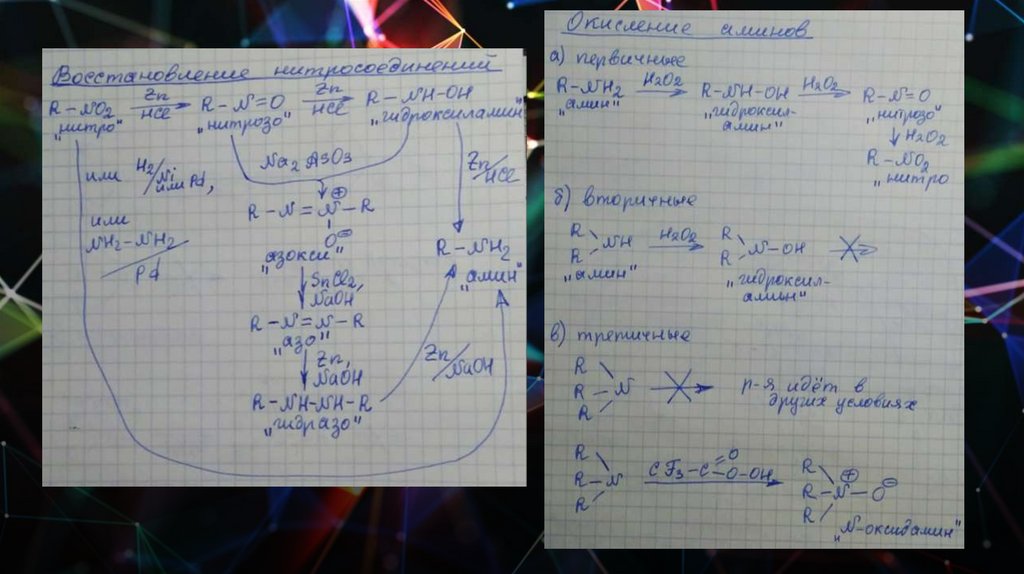 Восстановление нитросоединений
R-NO2 Zn/HCl R-N=O Zn/HCl R-NH-OH
"нитро" "нитрозо" "гидроксиламин"
или H2/Ni или Pd,
Na2AsO3
Zn/HCl
или
NH2-NH2/Pd
R-N=N-R
⊕
O⊖
"азокси"
R-NH2
"амин"
SnCl2,
NaOH
R-N=N-R
"азо"
Zn,
NaOH
Zn/NaOH
R-NH-NH-R
"гидразо"
Окисление аминов
а) первичные
R-NH2 H2O2 R-NH-OH H2O2 R-N=O
"амин" "гидроксил-
амин" "нитрозо"
H2O2
R-NO2
"нитро
б) вторичные
R
R NH H2O2 R
R N-OH
"амин" "гидроксил-
амин"
в) третичные
R
R-N
R
р-я идёт в
других условиях
R
R-N
R
CF3-C=O
O-OH
R
R-N⊕-O⊖
R
"N-оксидамин"